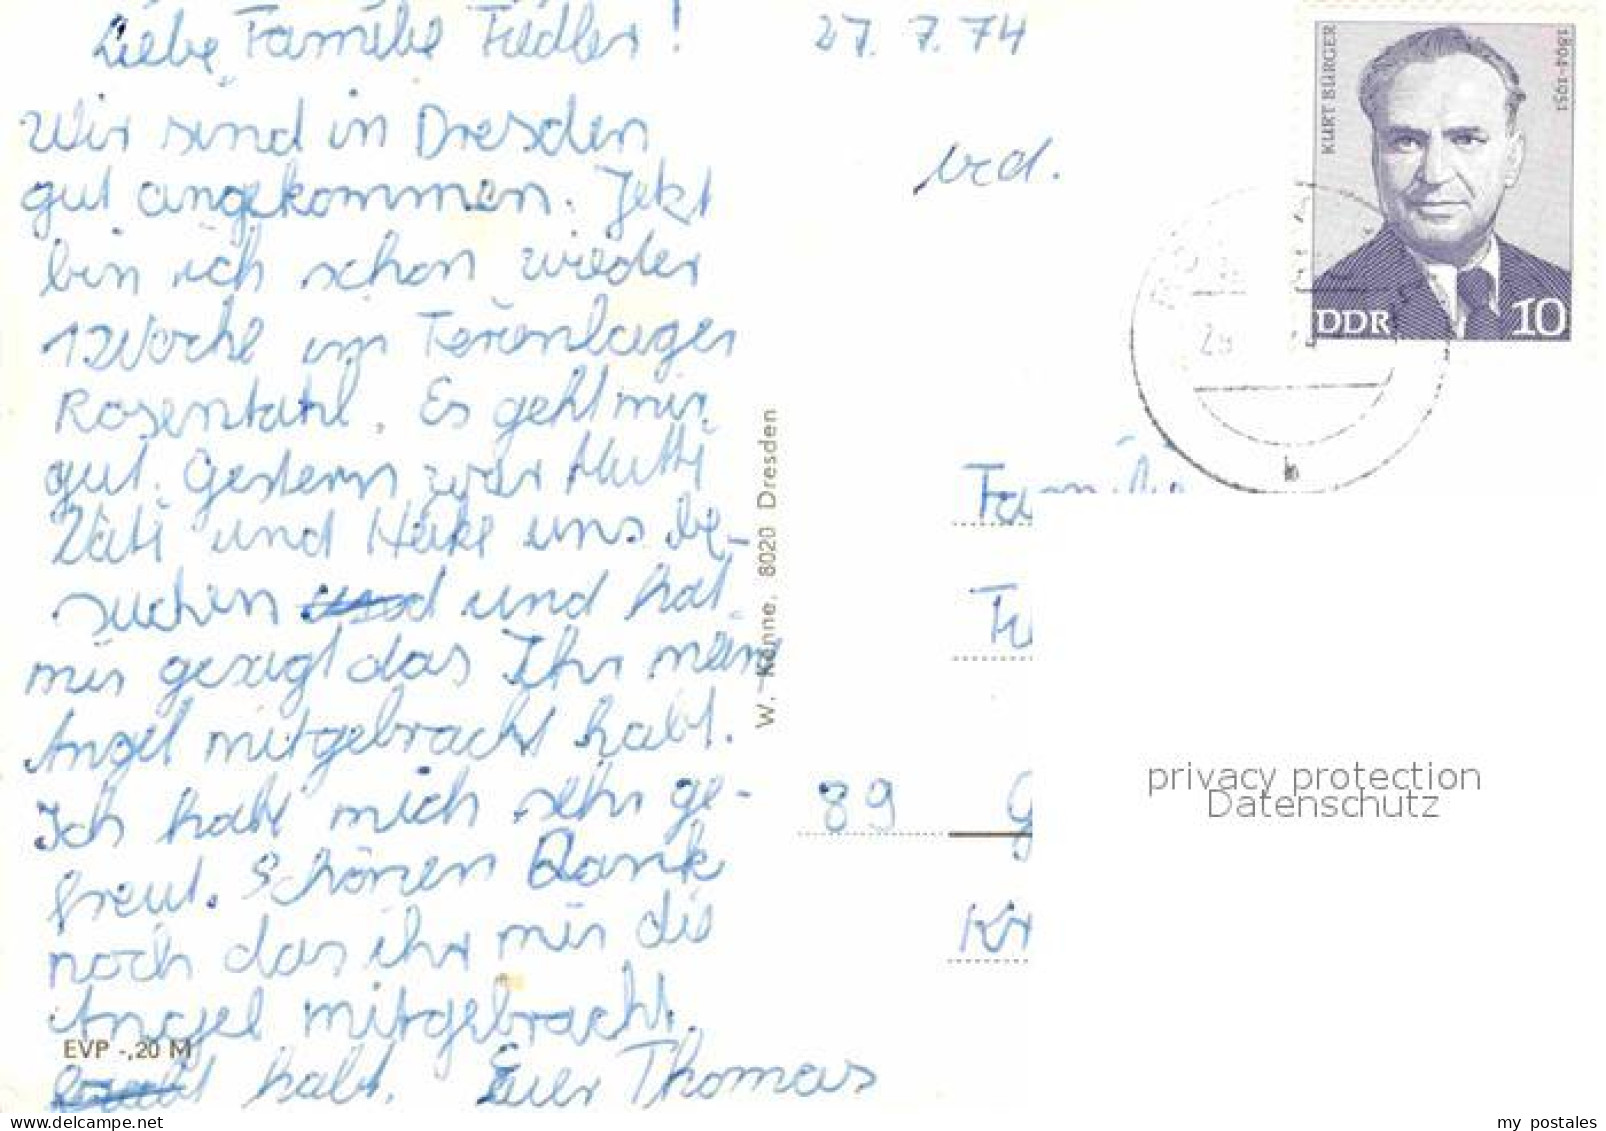 Liebe Familie Fiedler!
27. 7. 74
Wir sind in Dresden
gut angekommen. Jetzt
bin ich schon wieder
1 Woche im Ferienlager
Rosentahl. Es geht mir
gut. Gestern war Mutti
Vati und Heike uns be-
suchen und hat
mir gezagt das Ihr meine
Angel mitgebracht habt.
Ich habe mich sehr ge-
freut. Schönen Dank
noch das ihr mir die
Angel mitgebracht
habt. Euer Thomas
EVP -,20 M
W. Könne, 8020 Dresden
KURT BÜRGER
1894-1951
DDR 10
Familie
89
privacy protection
Datenschutz
my postales